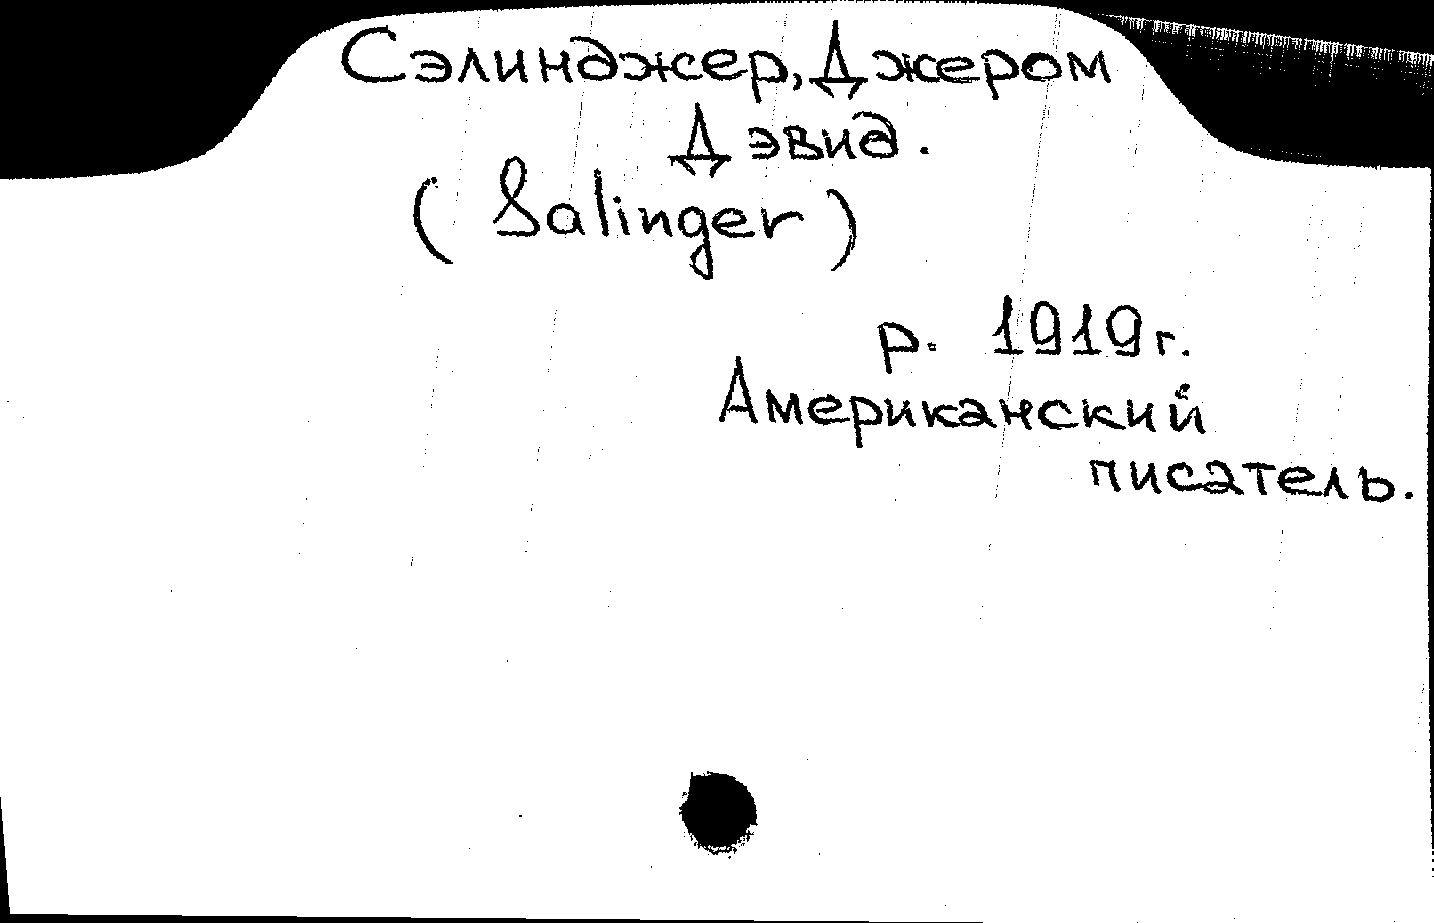 Сэлинджер, Джером
Дэвид.
( Salinger )
р. 1919 г.
Американский
писатель.